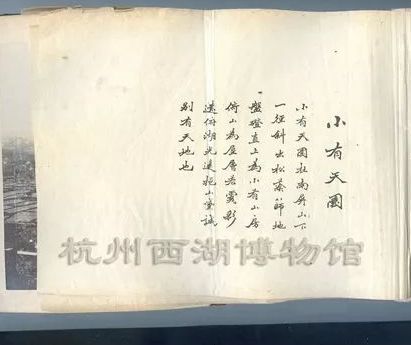 小有天園
小有天園在南屏山下
一徑斜出松地
盤磴直上為小有山房
倚山為屋層若雲影
俯湖光遠挹山容誠
別有天地也
杭州西湖博物館